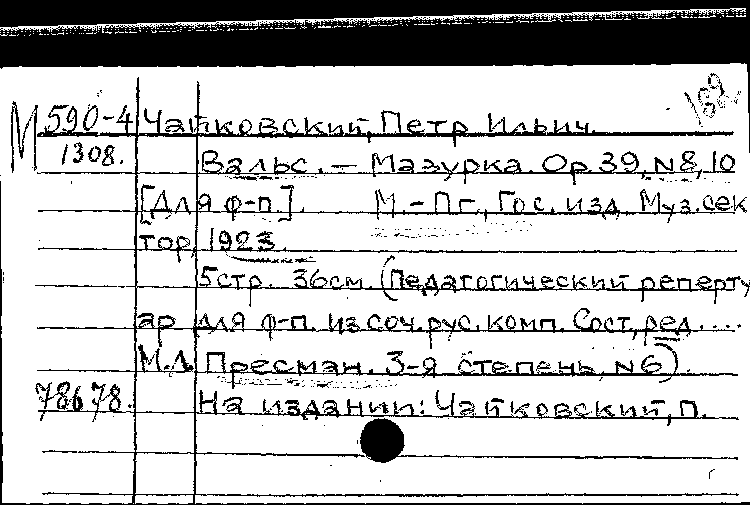 М 590-4 Чайковский, Петр Ильич.
1308. Вальс. – Мазурка. Ор. 39, N 8, 10
[Для ф-п.]. М. – Пг., Гос. изд. Муз. сек
тор, 1923.
5 стр. 36 см. (Педагогический реперту
ар для ф-п. из соч. рус. комп. Сост., ред. ...
М.Л. Пресман. 3-я степень, N 6).
78678. На издании: Чайковский, П.